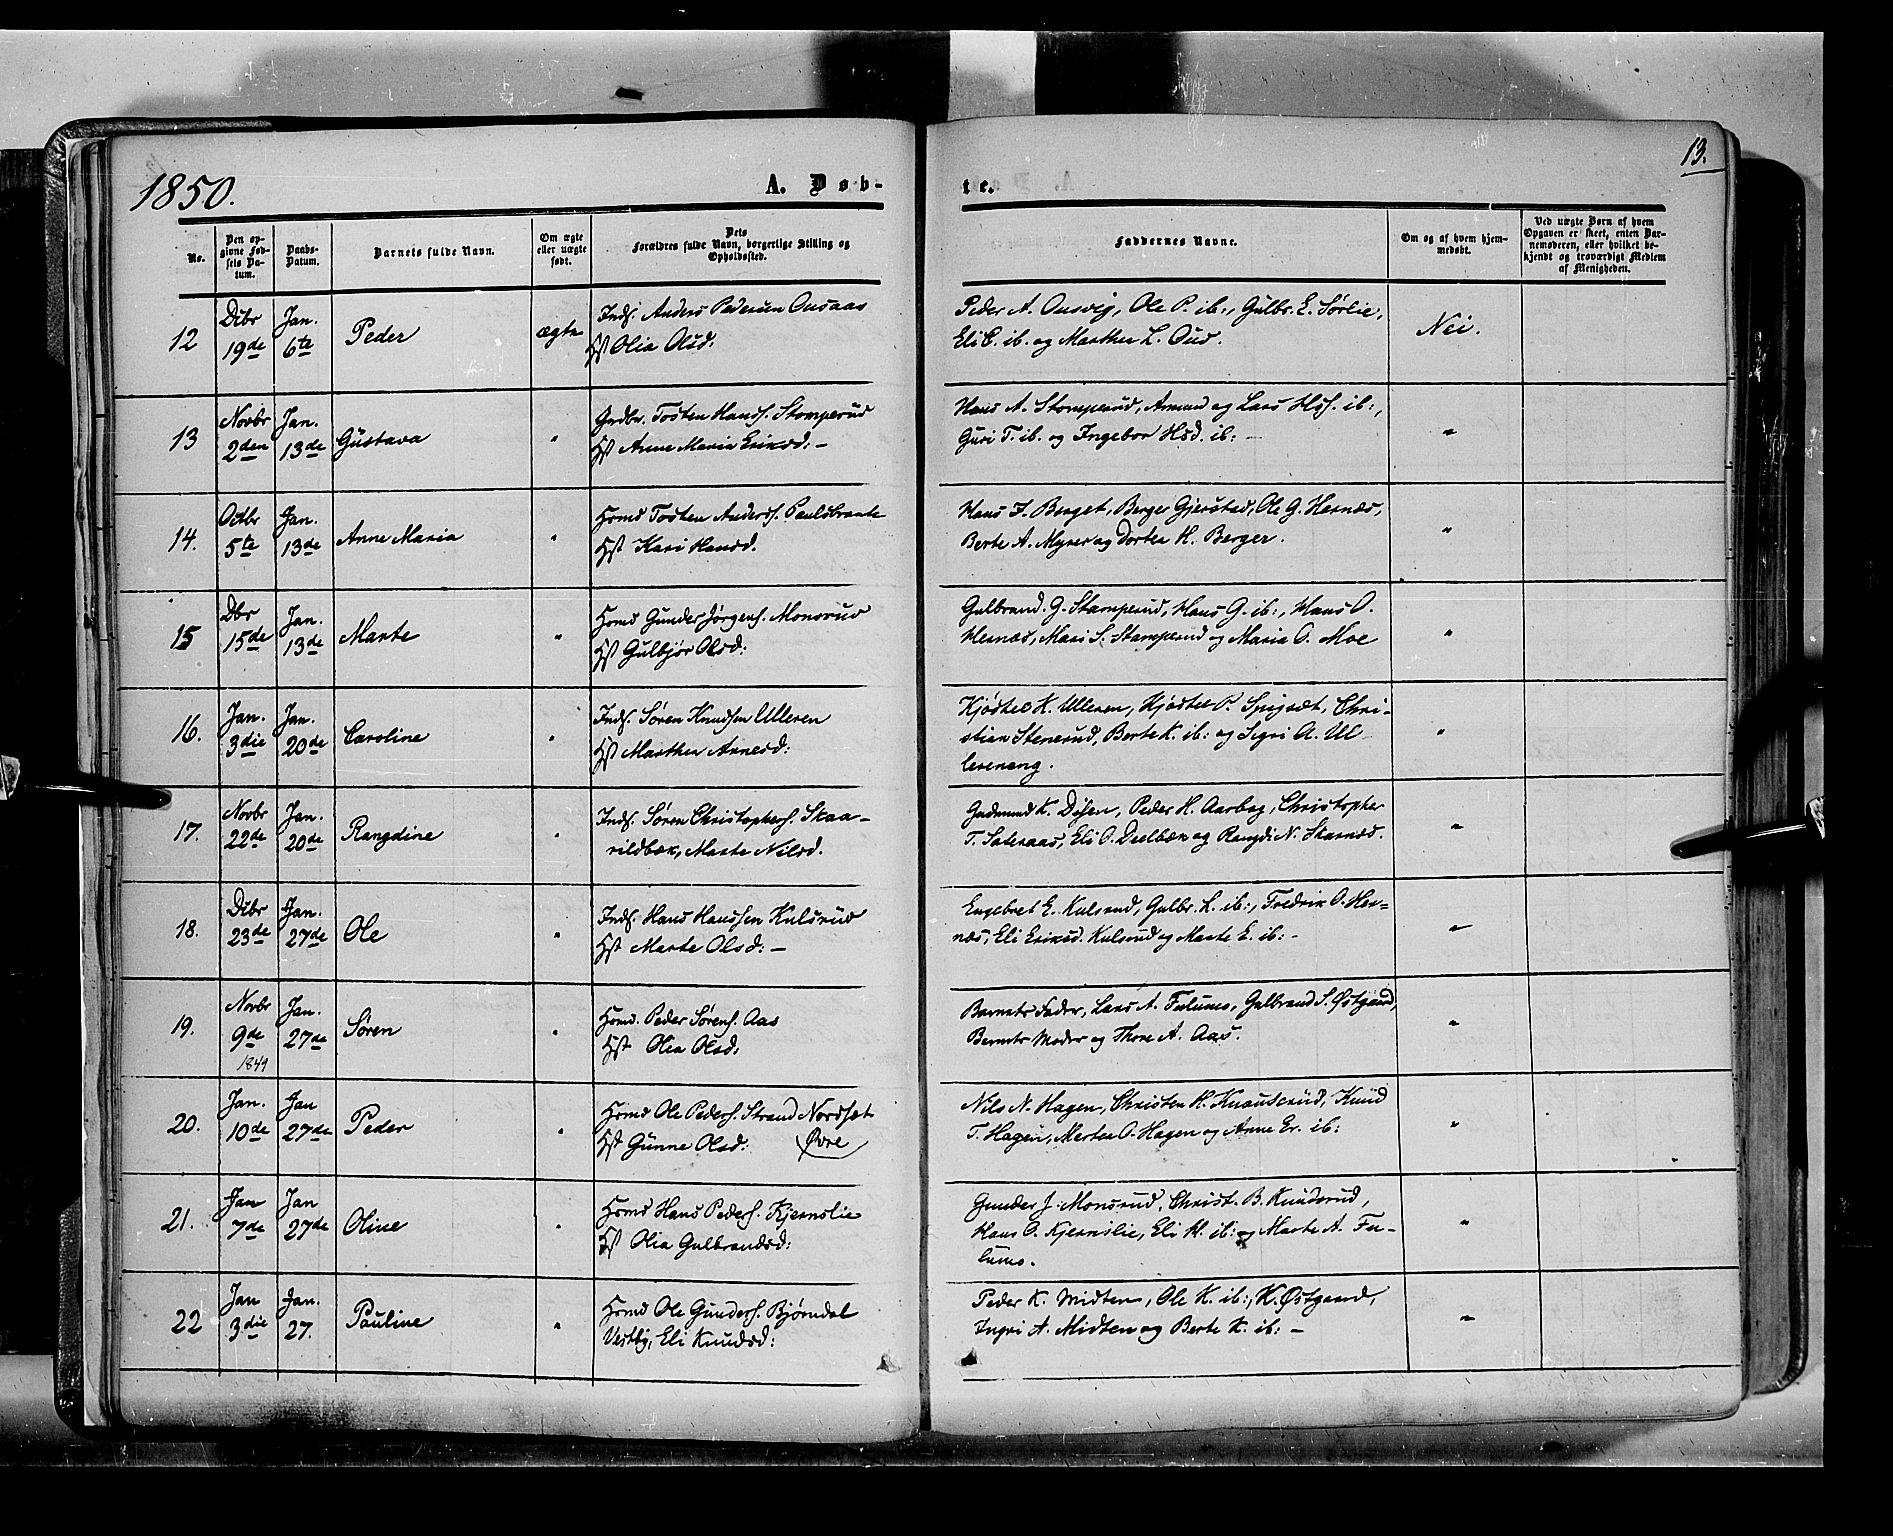 13.
1850.
A. Døb-
te.
No.
Den op-
givne Fød-
sels Da-
tum.
Daabs-
Datum.
Barnets fulde Navn.
Om ægte
eller uægte
født.
Dets
Forældres fulde Navn, borgerlige Stilling og
Opholdssted.
Faddernes Navne.
Om og af hvem hjem-
medøbt.
Ved uægte Børn af hvem
Opgaven er skeet, enten Bar-
nemoderen, eller hvilket be-
kjendt og troværdigt Medlem
af Menigheden.
12
Dcbr
19de
Jan.
6te
Peder
ægte
Inds. Anders Pedersen Ousaas
Hst Olia Olsd:
Peder A. Ousvig, Ole P. ib:, Gulbr. E. Sørlie,
Eli C. ib. og Marthea L. Oud.
Nei.
13
Novbr
2den
Jan.
13de
Gustava
"
Grdbr. Tosten Hans. Stomperud
Hst Anne Maria Eriksd: –
Hans A. Stomperud, Amund og Lars Hss. ib:,
Guri T. ib. og Ingebor Hsd. ib: –
"
14.
Octbr
5te
Jan.
13de
Anne Maria
"
Hsmd Tosten Anders. Paulsbraate
Hst Kari Hansd.
Hans J. Berget, Berger Gjerstad, Ole G. Hernæs,
Berte A. Myrer og Dortea H. Berger.
"
15
Dbr
15de
Jan.
13de
Marte
"
Hsmd Gunder Jørgens. Monsrud
Hst Gulbjør Olsd:
Gulbrand. G. Stamperud, Hans G. ib:, Hans O.
Hernæs, Mari S. Stamperud og Maria O. Moe
"
16.
Jan.
3die
Jan.
20de
Caroline
"
Inds. Søren Knudsen Ulleren
Hst Marthea Arnesd:
Kjøstel K. Ulleren, Kjøstel P. Spigsæt, Chri-
stian Stenerud, Berte K. ib: og Sigri A. Ul
lereneng.
"
17.
Novbr
22de
Jan.
20de
Rangdine
"
Inds. Søren Christophers. Skaa-
rildbæk, Marte Nilsd.
Gudmund K. Dysen, Peder H. Aarbog, Christopher
T. Sateraas, Eli O. Deelbæk og Rangdi N. Skarnæs.
"
18.
Dcbr
23de
Jan.
27de
Ole
"
Inds. Hans Hanssen Kulsrud
Hst Marte Olsd: –
Engebret E. Kulsrud, Gulbr. L. ib:, Fredrik O. Her-
næs, Eli Eriksd. Kulsrud og Marte E. ib: –
"
19.
Novbr
9de
1849
Jan.
27de
Søren
"
Hsmd. Peder Sørens. Aas
Hst Olia Olsd:
Barnets Fader, Lars A. Fulums, Gulbrand S. Østgaard,
Barnets Moder og Thore A. Aas.
"
20.
Jan.
10de
Jan
27de
Peder
"
Hsmd Ole Peders. Strand Nordset
Hst Gunne Olsd: Øvre
Nils N. Hagen, Christen H. Knauserud, Knud
T. Hagen, Mertea O. Hagen og Anne Er. ib:
"
21.
Jan
7de
Jan
27de
Oline
"
Hsmd Hans Peders. Kjernslie
Hst Olia Gulbrandsd:
Gunder J. Monsrud, Christ. B. Knudsrud,
Hans O. Kjernslie, Eli H. ib: og Marte A. Fu-
lums.
"
22
Jan
3die
Jan.
27.
Pauline
"
Hsmd Ole Gunders. Bjørndal
Vestby, Eli Knudsd:
Peder K. Midten, Ole K. ib:, K. Østgaard,
Ingri A. Midten og Berte K. ib: –
"